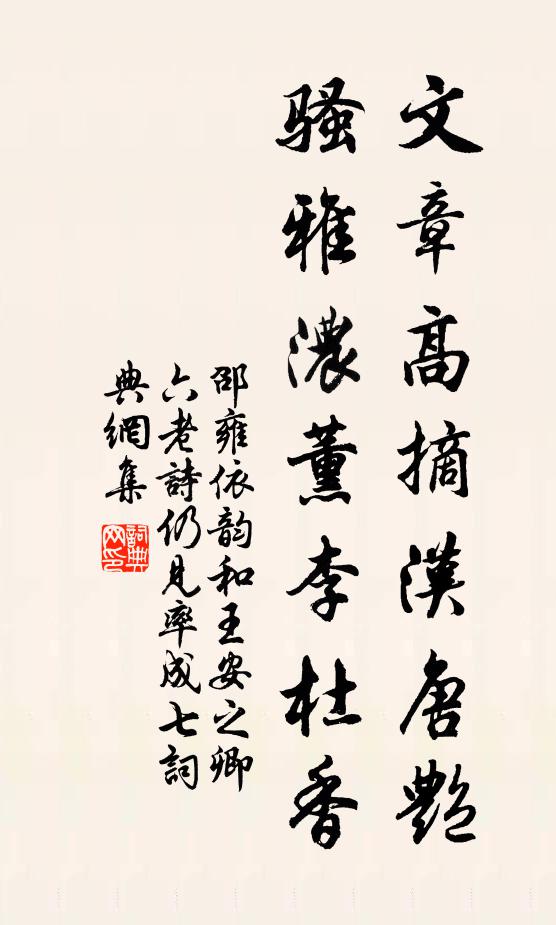 文章高摘漢唐艷
騷雅濃薰李杜香
邵雍依韵和王安之卿
六老詩仍見率成七詞
典網集
詞典網印